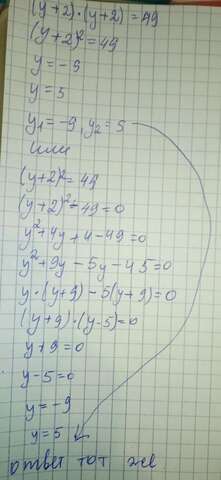 (y+2)·(y+2)=49
(y+2)²=49
y=-9
y=5
y₁=-9, y₂=5
или
(y+2)²=49
(y+2)²-49=0
y²+4y+4-49=0
y²+9y-5y-45=0
y·(y+9)-5(y+9)=0
(y+9)·(y-5)=0
y+9=0
y-5=0
y=-9
y=5
ответ тот же